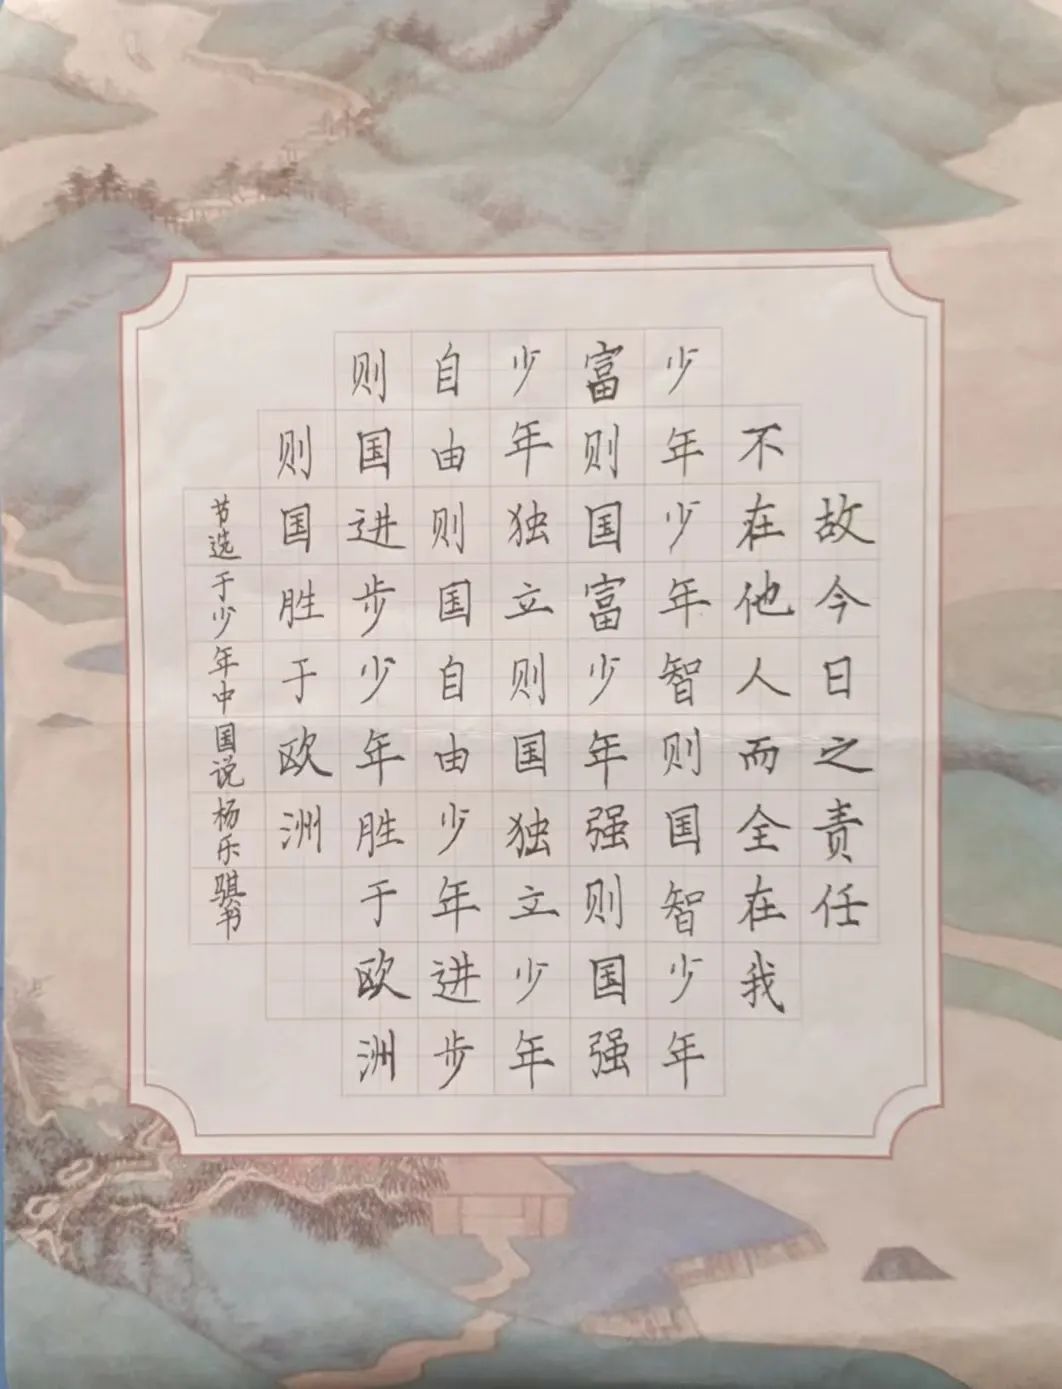 故今日之责任
不在他人而全在我
少年少年智则国智少年
富则国富少年强则国强
少年独立则国独立少年
自由则国自由少年进步
则国进步少年胜于欧洲
则国胜于欧洲
节选于少年中国说杨乐骐书